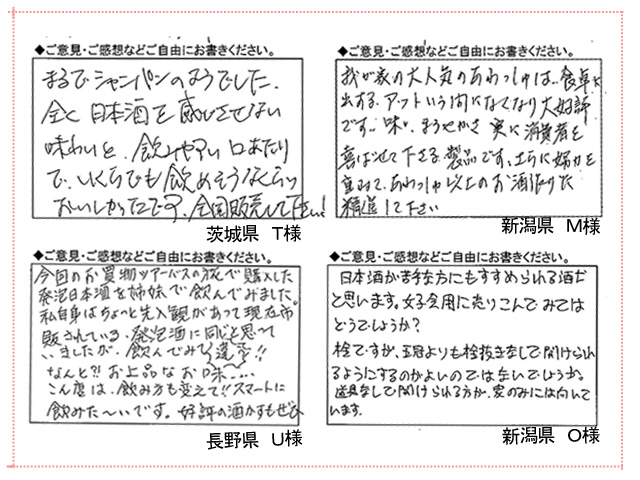 ◆ご意見・ご感想などご自由にお書きください。
まるでシャンパンのようでした。
全く日本酒を感じさせない
味わいと、飲みやすい口あたり
で、いくらでも飲めそうなくらい
おいしかったです。全国販売して下さい!
茨城県 T様
◆ご意見・ご感想などご自由にお書きください。
我が家の大人気のあわっしゅは、食卓に
出すると、アットいう間になくなり大好評
です。味、まろやかさ 実に消費者を
喜ばせて下さる製品です。さらに努力を
重ねて、あわっしゅ以上のお酒作りに
精進して下さい
新潟県 M様
◆ご意見・ご感想などご自由にお書きください。
今回のお買物ツアーバスの旅で購入した
発泡日本酒を姉妹で飲んでみました。
私自身はちょっと先入観があって現在市
販されている、発泡酒に同じと思って
いましたが、飲んでみて違う!!
なんと?!お上品なお味〜
こん度は、飲み方も変えて!!スマートに
飲みた〜いです。好評の酒かすもぜひ
長野県 U様
◆ご意見・ご感想などご自由にお書きください。
日本酒が苦手な方にもすすめられる酒だ
と思います。女子会用に売りこんでみては
どうでしょうか?
栓ですが、王冠よりも栓抜きなしで開けられ
るようにするのがよいのではないでしょうか。
道具なしで開けられる方が、家のみには向いて
います。
新潟県 O様